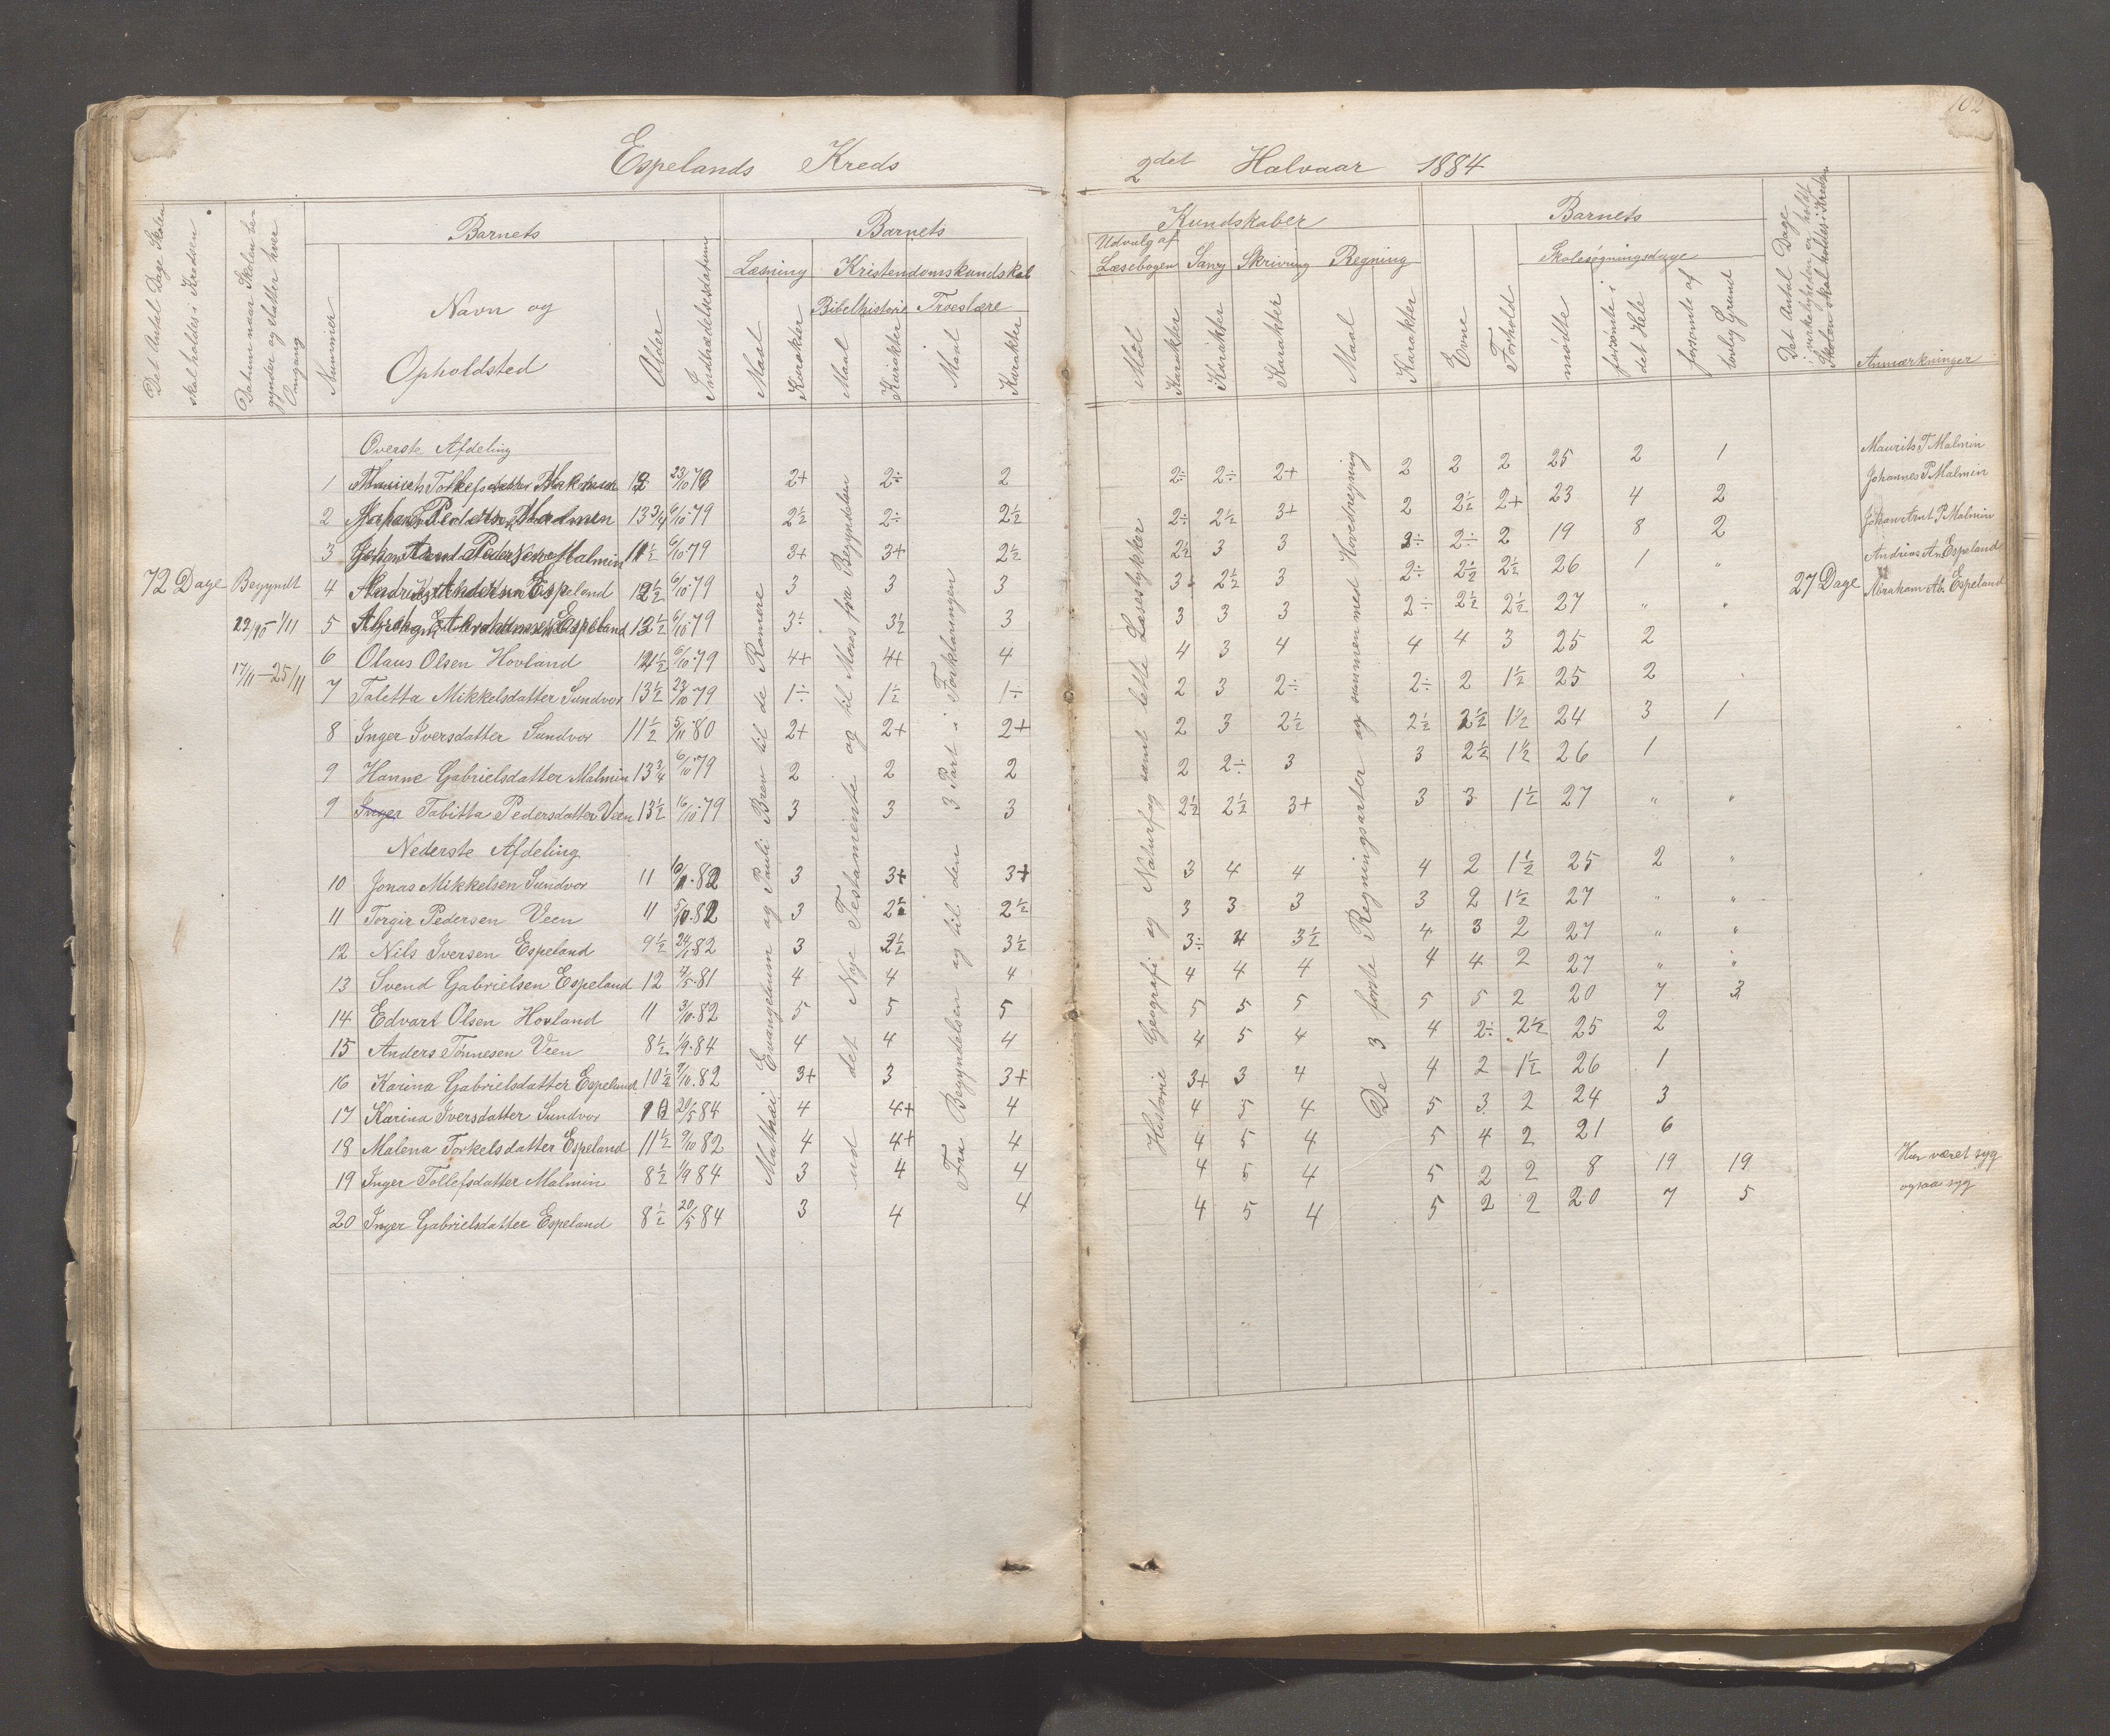 102
Espelands Kreds
2det Halvaar 1884
Det Antal Dage Skolen skal holdes i Kredsen
Datum naar Skolen begynder og slutter hver Omgang
Nummer
Barnets
Navn og
Opholdsted
Alder
Indtrædelsesdatum
Barnets
Læsning Kristendomskundskab
Bibelhistorie Troeslære
Maal Karakter Maal Karakter Maal Karakter
Kundskaber
Udvalg af
Læsebogen Sang Skrivning Regning
Maal Karakter Karakter Karakter Maal Karakter
Barnets
Evne Forhold
Skolesøgningsdage
mødte
forsømte i det Hele
forsømte af lovlig Grund
Det Antal Dage i virkeligheden er holdt Skolen skal holdes i Kredsen
Anmærkninger
72 Dage Begyndt
22/10 – 1/11
17/11 – 25/11
Mathæi Evangelium og Pauli Brev til de Romere
ud det Nye Testamente og til Moses fra Begyndelsen
Fra Begyndelsen og til den 3 Part i Forklaringen
Historie Geografi og Naturfag samt lette Læsestykker
De 3 første Regningsarter og sammen med Hovedregning
Øverste Afdeling
1 2+ 2÷ 2 2÷ 2÷ 2+ 2 2 2 25 2 1 Maurits T Malmin
2 Malmin 13 3/4 6/10 79 2½ 2÷ 2½ 2÷ 2½ 3+ 2 2½ 2+ 23 4 2 Johannes P Malmin
3 Malmin 11½ 6/10 79 3+ 3+ 2½ 2½ 3 3 2÷ 2 19 8 2 Johan Arnt P Malmin
4 Espeland 12½ 6/10 79 3 3 3 3 2½ 3 2÷ 2½ 2½ 26 1 " Andreas An Espeland
5 Espeland 6/10 79 3÷ 3½ 3 3 3 3 2÷ 2½ 2½ 27 " " 27 Dage Abraham Ab. Espeland
6 Olaus Olsen Hovland 6/10 79 4+ 4+ 4 4 3 4 4 4 3 25 2
7 Taletta Mikkelsdatter Sundvor 13½ 23/10 79 1÷ 1½ 1÷ 2 3 2÷ 2÷ 2 1½ 25 2
8 Inger Iversdatter Sundvor 11½ 5/11 80 2+ 2+ 2+ 2 3 2½ 2½ 2½ 1½ 24 3 1
9 Hanne Gabrielsdatter Malmin 13¾ 6/10 79 2 2 2 2 2÷ 3 3 2½ 1½ 26 1
9 Inger Tabitta Pedersdatter Veen 13½ 16/10 79 3 3 3 2½ 2½ 3+ 3 3 1½ 27 " "
Nederste Afdeling
10 Jonas Mikkelsen Sundvor 11 82 3 3+ 3+ 3 4 4 4 2 1½ 25 2 "
11 Torgir Pedersen Veen 11 5/10 82 3 2½ 2½ 3 3 3 3 2 1½ 27 " "
12 Nils Iversen Espeland 9½ 82 3 3½ 3÷ 4 3½ 4 3 2 27 " "
13 Svend Gabrielsen Espeland 12 4/5 81 4 4 4 4 4 4 4 4 2 27 " "
14 Edvart Olsen Hovland 11 3/10 82 5 5 5 5 5 5 5 5 2 20 7 3
15 Anders Tønnesen Veen 8½ 1/9 84 4 4 4 4 5 4 4 2÷ 2½ 25 2
16 Karina Gabrielsdatter Espeland 10½ 9/10 82 3+ 3 3+ 3+ 3 4 4 2 1½ 26 1
17 Karina Iversdatter Sundvor 20/5 84 4 4+ 4 4 5 4 5 3 2 24 3
18 Malena Torkelsdatter Espeland 11½ 9/10 82 4 4+ 4 4 5 4 5 4 2 21 6
19 Inger Tollefsdatter Malmin 8½ 1/9 84 3 4 4 4 5 4 5 2 2 8 19 19 Har været syg
20 Inger Gabrielsdatter Espeland 8½ 20/5 84 3 4 4 4 5 4 5 2 2 20 7 5 ogsaa syg